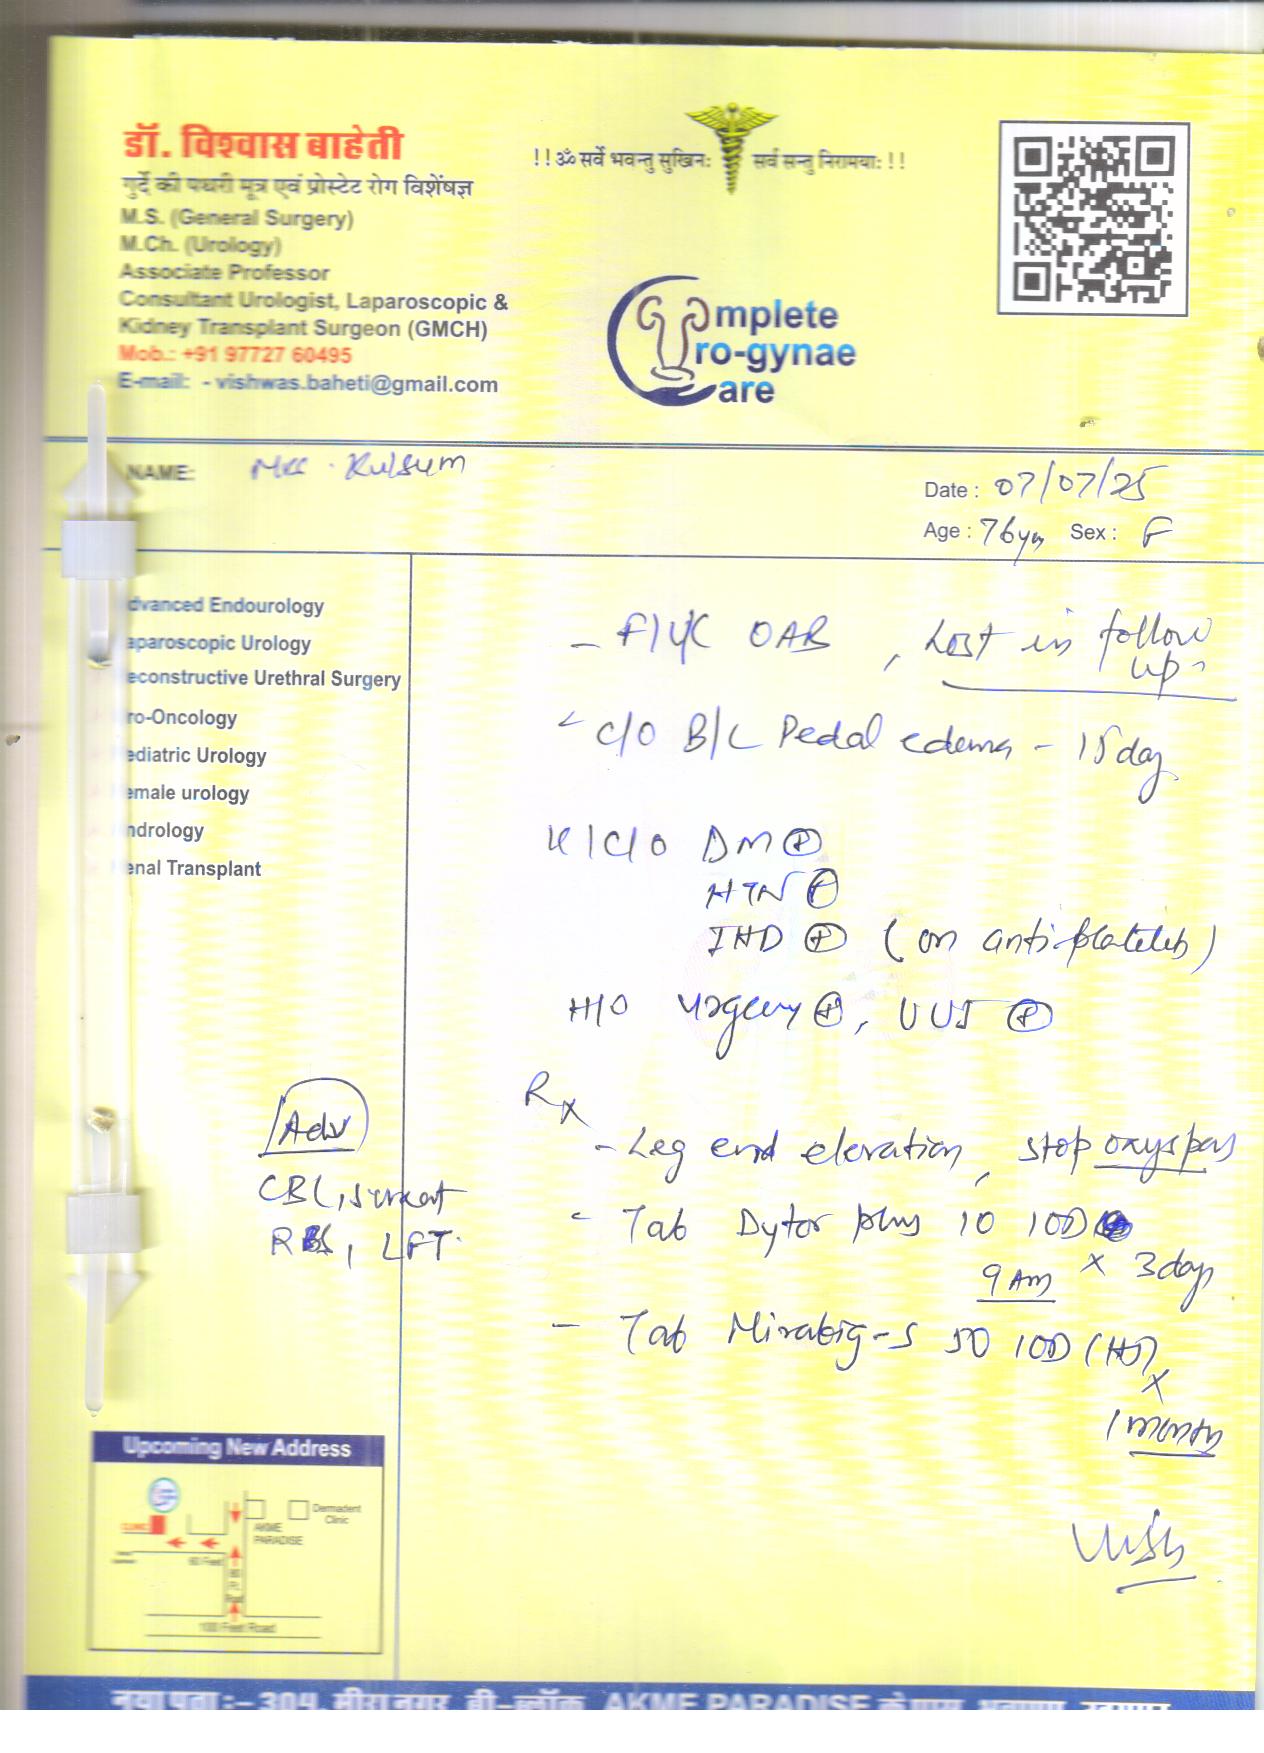 डॉ. विश्वास बाहेती
गुर्दे की पथरी मूत्र एवं प्रोस्टेट रोग विशेंषज्ञ
M.S. (General Surgery)
M.Ch. (Urology)
Associate Professor
Consultant Urologist, Laparoscopic &
Kidney Transplant Surgeon (GMCH)
Mob.: +91 97727 60495
E-mail: - vishwas.baheti@gmail.com
!! ॐ सर्वे भवन्तु सुखिनः सर्व सन्तु निरामयाः !!
Complete
Uro-gynae
Care
NAME: Mrs. Kulsum
Date : 07/07/25
Age : 76yrs Sex : F
Advanced Endourology
Laparoscopic Urology
Reconstructive Urethral Surgery
Uro-Oncology
Pediatric Urology
Female urology
Andrology
Renal Transplant
- F/U/C OAB, Lost in follow
up
- C/O B/L Pedal edema - 15 day
K/C/O DM ⊕
HTN ⊕
IHD ⊕ (on antiplatelets)
H/O Urgency ⊕, UUI ⊕
Rx
- Leg end elevation, stop oxyspas
- Tab Dytor plus 10 1OD
9 AM x 3 days
- Tab Mirabig-S 50 1OD (HS)
x
1 month
Adv
CBC, S. creat
RBS, LFT
Upcoming New Address
CLINIC
AKME
PARADISE
Dermadent
Clinic
60 Feet
100 Feet Road
नया पता :- 304, मीरा नगर, बी-ब्लॉक, AKME PARADISE के पास,